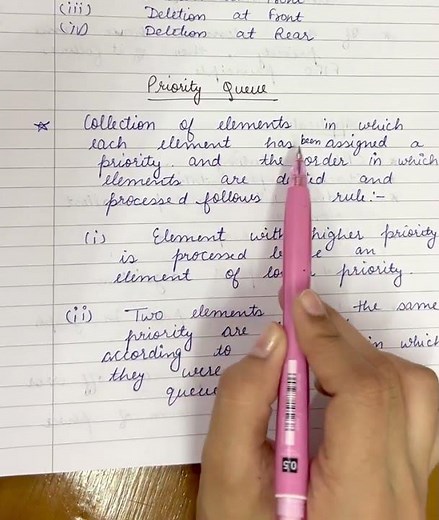 (iii) Deletion at Front
(iv) Deletion at Rear
Priority Queue
☆ Collection of elements in which
each element has been assigned a
priority and the order in which
elements are and
processed follows rule:-
(i) Element with higher priority
is processed an
element of priority.
(ii) Two elements the same
priority are
according to in which
they were
queue
0.5